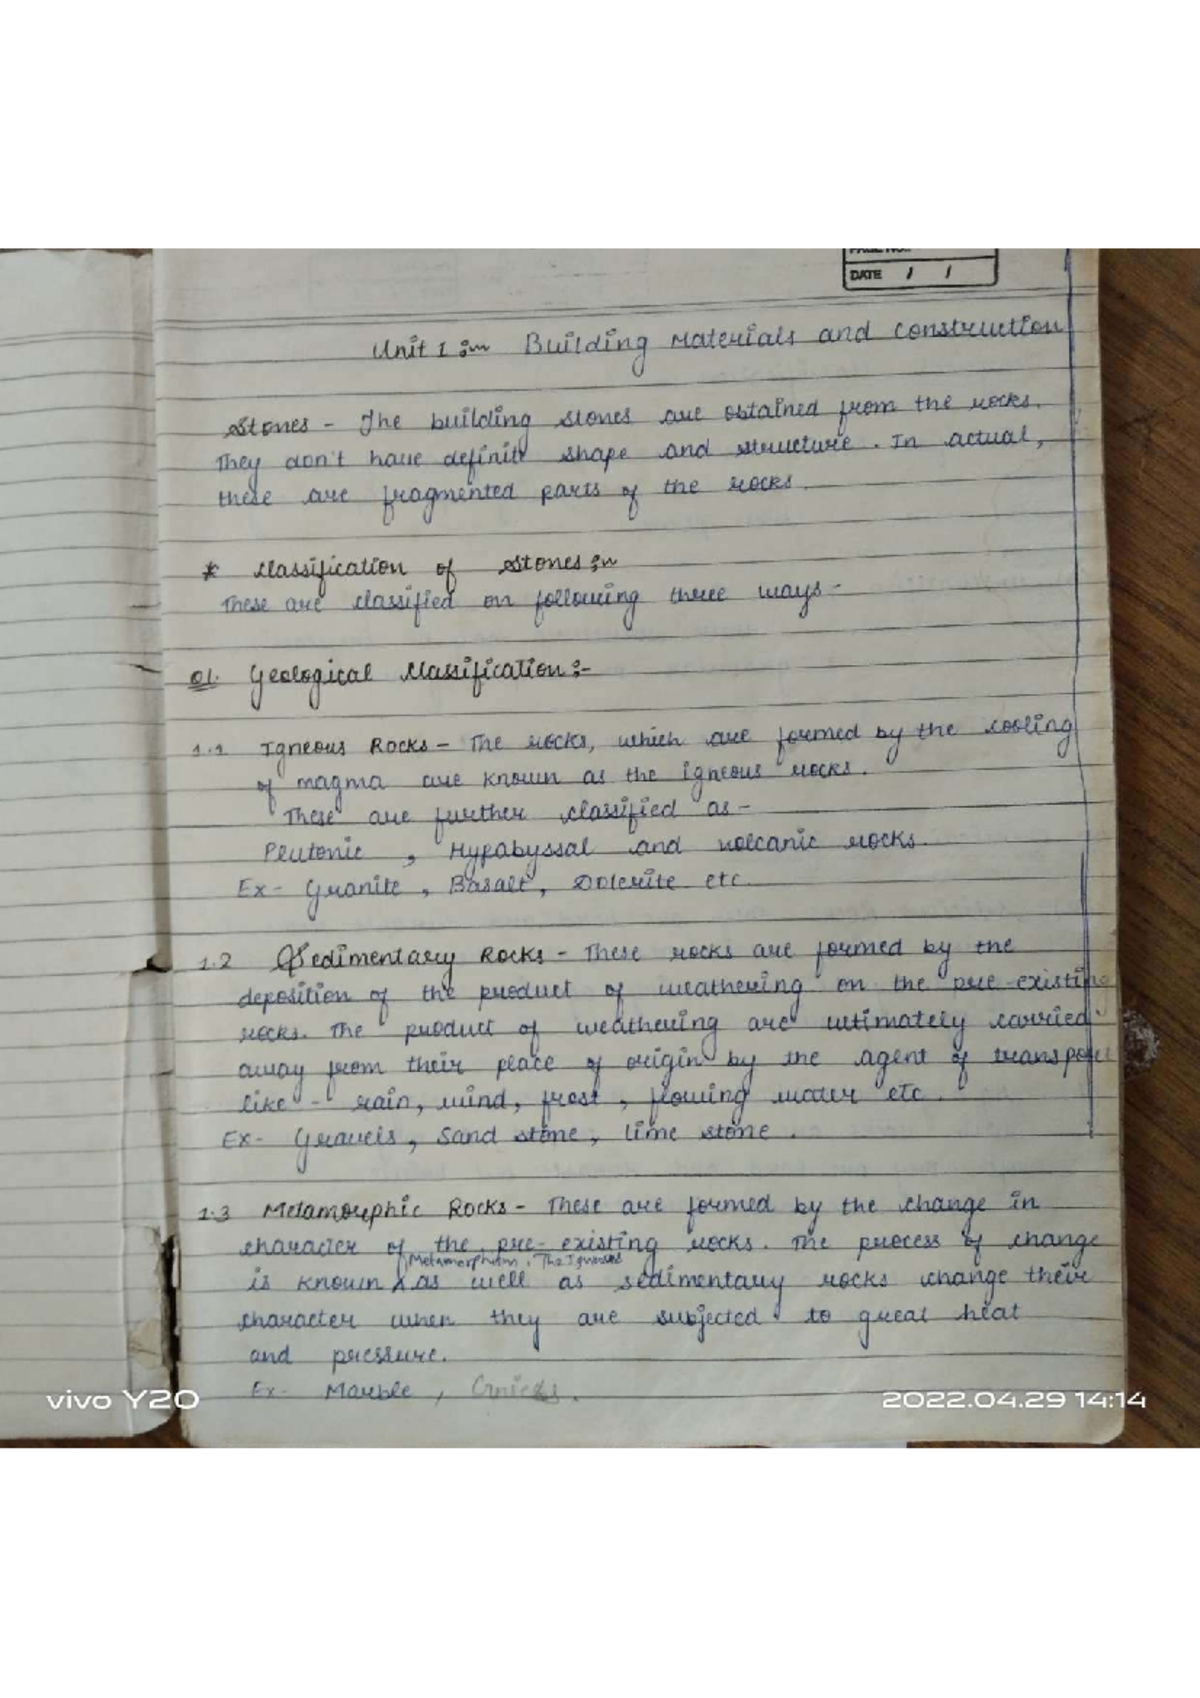 DATE / /
Unit 1 :- Building Materials and Construction
Stones - The building stones are obtained from the rocks.
They don't have definite shape and structure. In actual,
these are fragmented parts of the rocks.
* Classification of Stones :-
These are classified on following three ways -
01. Geological Classification :-
1.1 Igneous Rocks - The rocks, which are formed by the cooling
of magma are known as the igneous rocks.
These are further classified as -
Plutonic , Hypabyssal and volcanic rocks.
Ex - Granite , Basalt , Dolerite etc.
1.2 Sedimentary Rocks - These rocks are formed by the
deposition of the product of weathering on the pre-existing
rocks. The product of weathering are ultimately carried
away from their place of origin by the agent of transport
like - rain, wind, frost , flowing water etc.
Ex - Gravels , Sand stone , Lime stone .
1.3 Metamorphic Rocks - These are formed by the change in
character of the pre-existing rocks. The process of change
Metamorphism . The Igneous
is known as well as sedimentary rocks change their
character when they are subjected to great heat
and pressure.
Ex - Marble ,
vivo Y20
2022.04.29 14:14